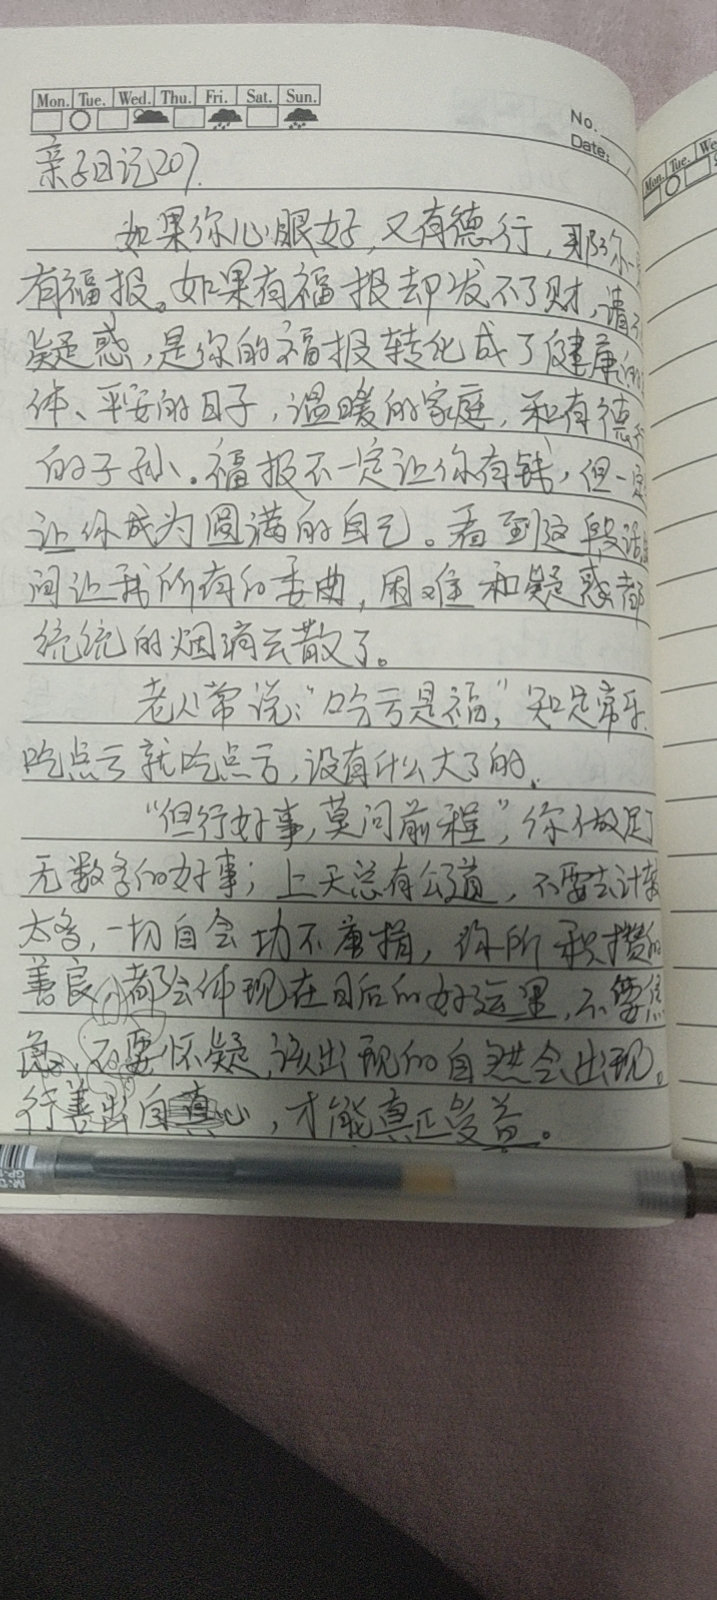 Mon. Tue. Wed. Thu. Fri. Sat. Sun.
No.
Date:
Mon. Tue. We
亲子日记207.
如果你心眼好,又有德行,那你一
有福报。如果有福报却发不了财,请不
疑惑,是你的福报转化成了健康的
体、平安的日子,温暖的家庭,和有德行
的子孙。福报不一定让你有钱,但一定
让你成为圆满的自己。看到这段话
间让我所有的委曲,困难和疑惑都
统统的烟消云散了。
老人常说:“吃亏是福,”知足常乐.
吃点亏就吃点亏,没有什么大了的.
“但行好事,莫问前程”,你做足了
无数多的好事;上天总有公道,不要去计较
太多,一切自会功不唐捐,你所积攒的
善良,都会体现在日后的好运里,不要焦
急,不要怀疑,该出现的自然会出现。
行善出自真心,才能真正受益。